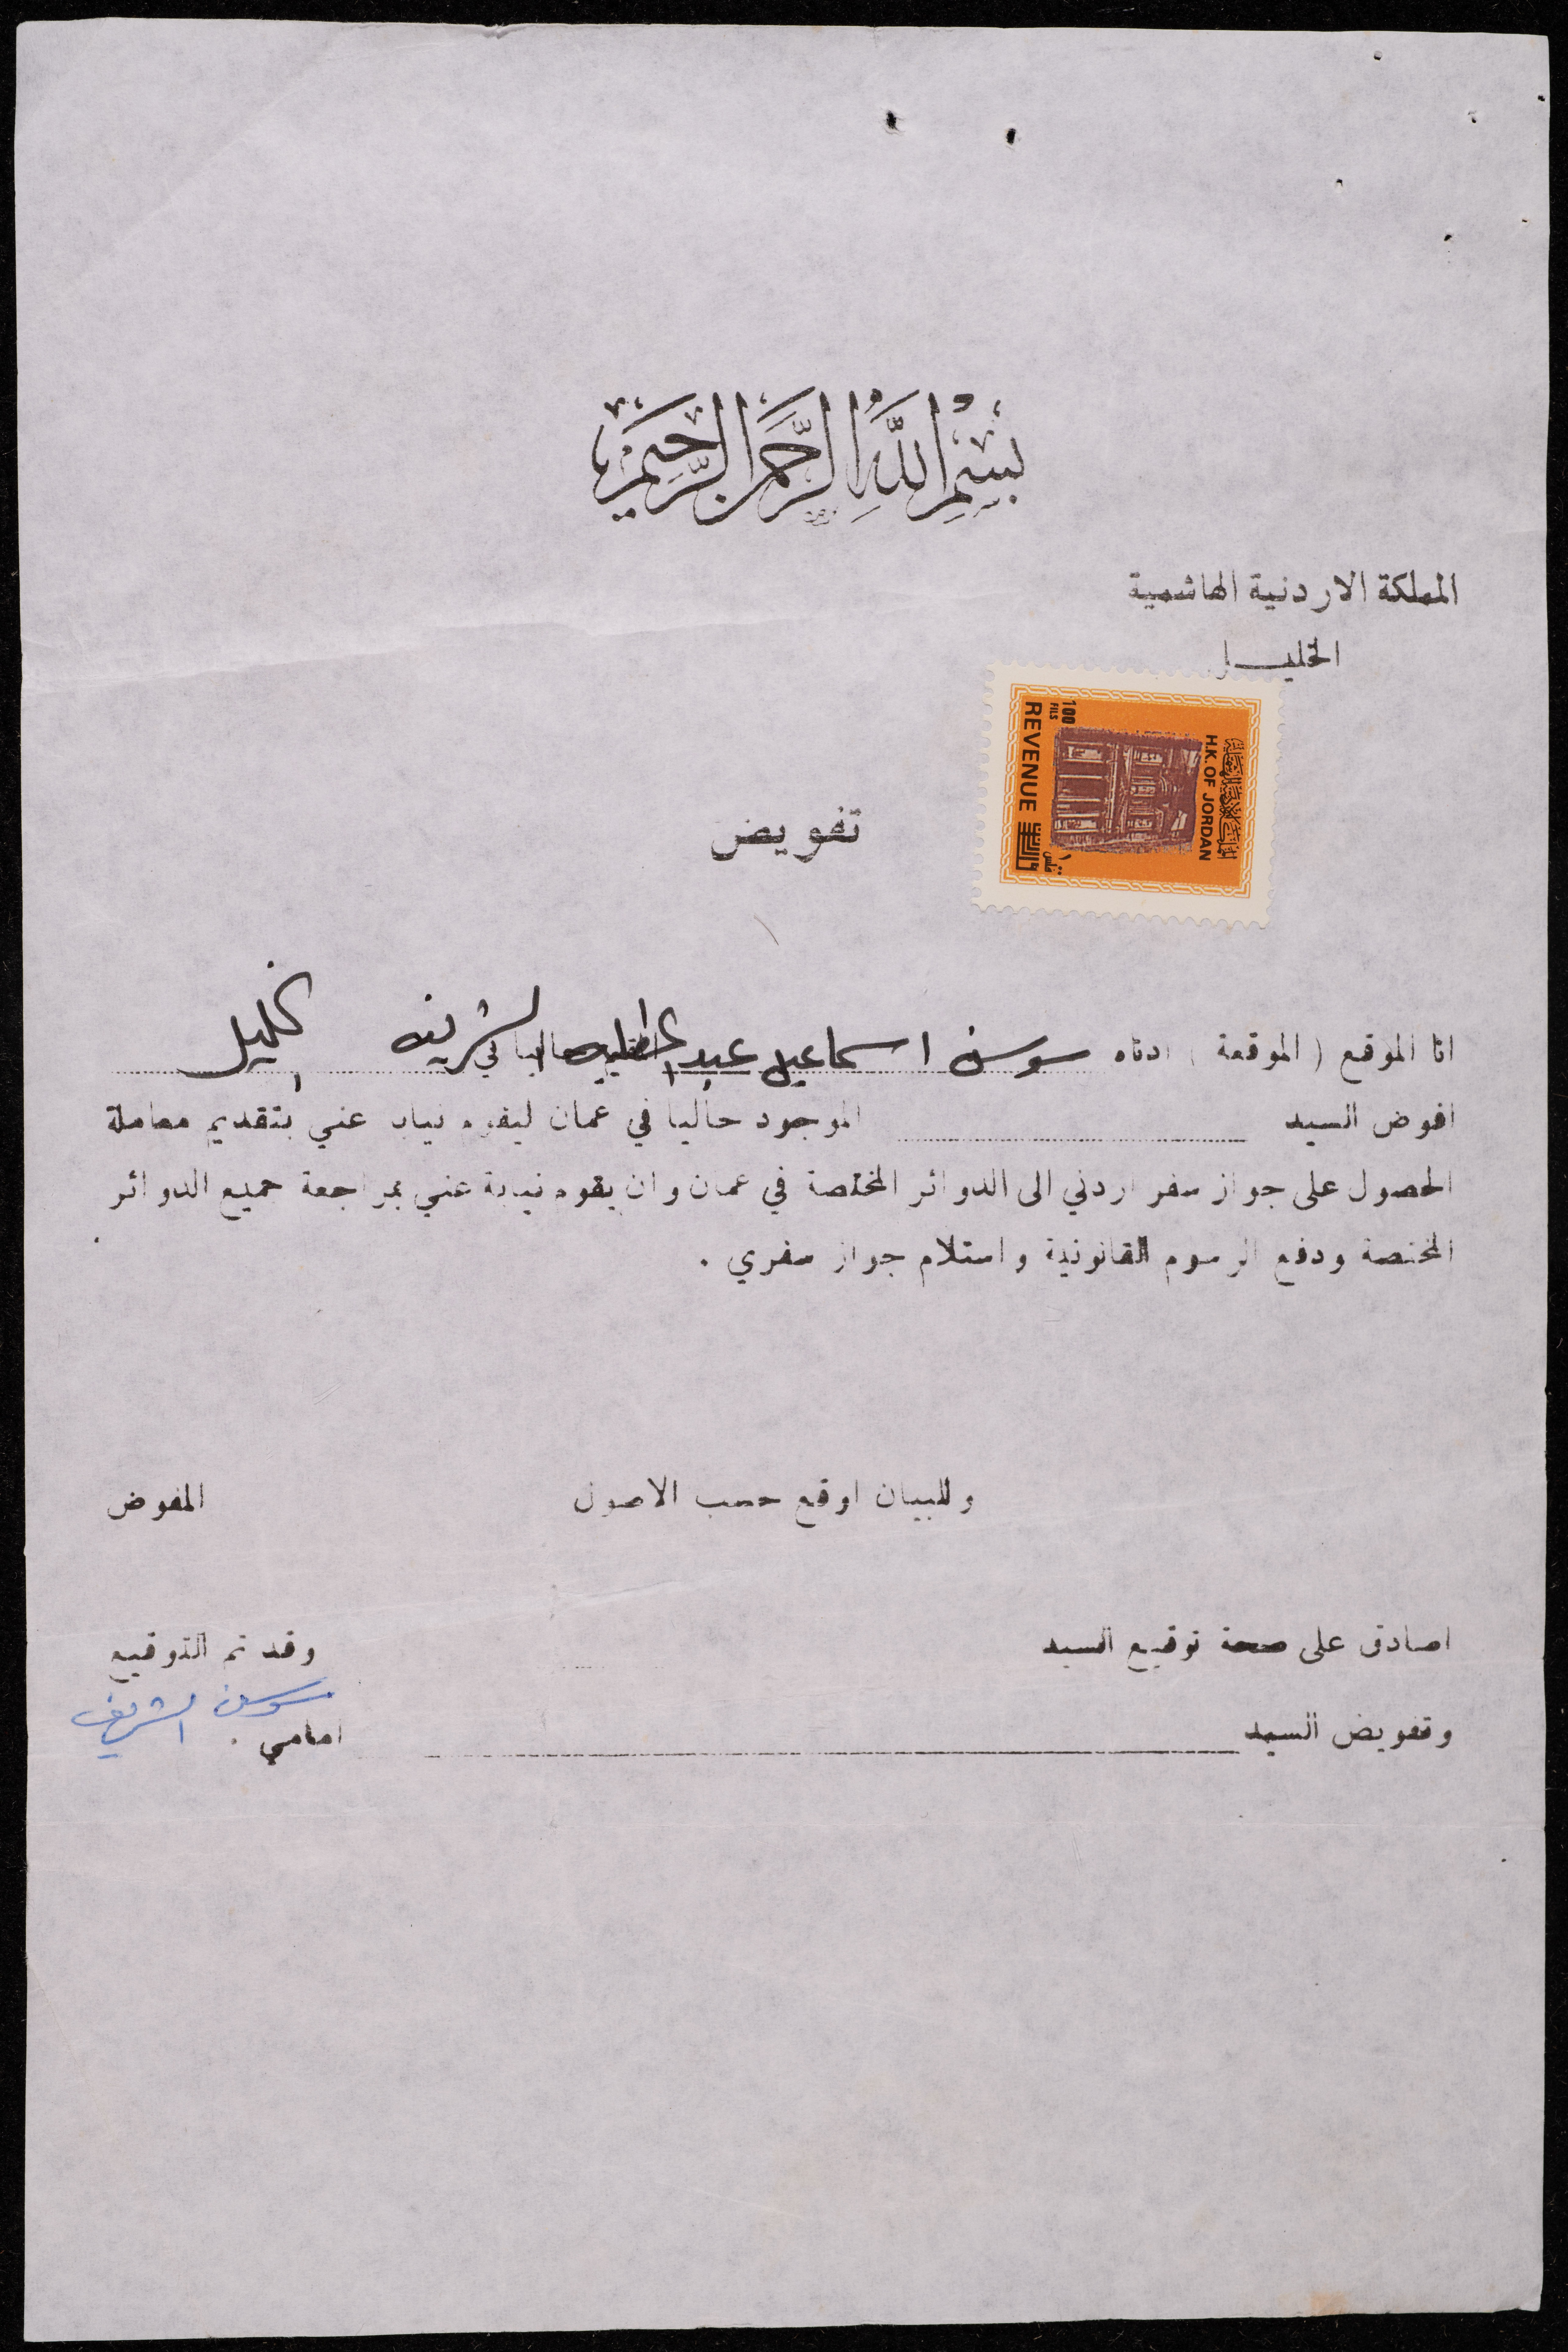 بِسْمِ اللَّهِ الرَّحْمَنِ الرَّحِيمِ
المملكة الاردنية الهاشمية
الخليــل
المملكة الاردنية الهاشمية
H.K. OF JORDAN
100 FILS
١٠٠ فلس
REVENUE
تفويض
انا الموقع ( الموقعة ) ادناه سوسن اسماعيل عبد المقيم حاليا في الشريف الخليل
افوض السيد الموجود حاليا في عمان ليقوم نيابة عني بتقديم معاملة
الحصول على جواز سفر اردني الى الدوائر المختصة في عمان وان يقوم نيابة عني بمراجعة جميع الدوائر
المختصة ودفع الرسوم القانونية واستلام جواز سفري .
وللبيان اوقع حسب الاصول
المفوض
اصادق على صحة توقيع السيد
وقد تم التوقيع
سوسن الشريف
وتفويض السيد
امامي .